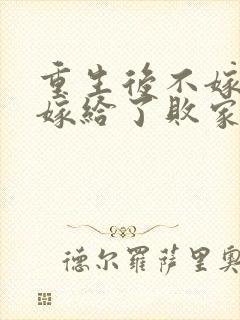 重生後不嫁
嫁給了敗家
德尔羅萨里奧